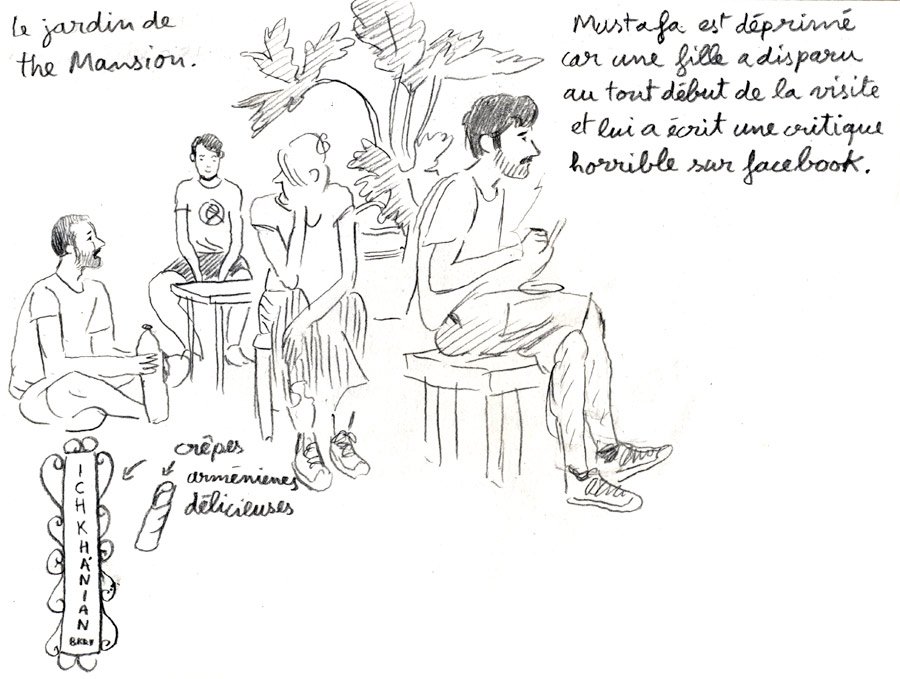 le jardin de
the Mansion.
Mustafa est déprimé
car une fille a disparu
au tout début de la visite
et lui a écrit une critique
horrible sur facebook.
crêpes
arménienes
délicieuses
ICHKHANIAN